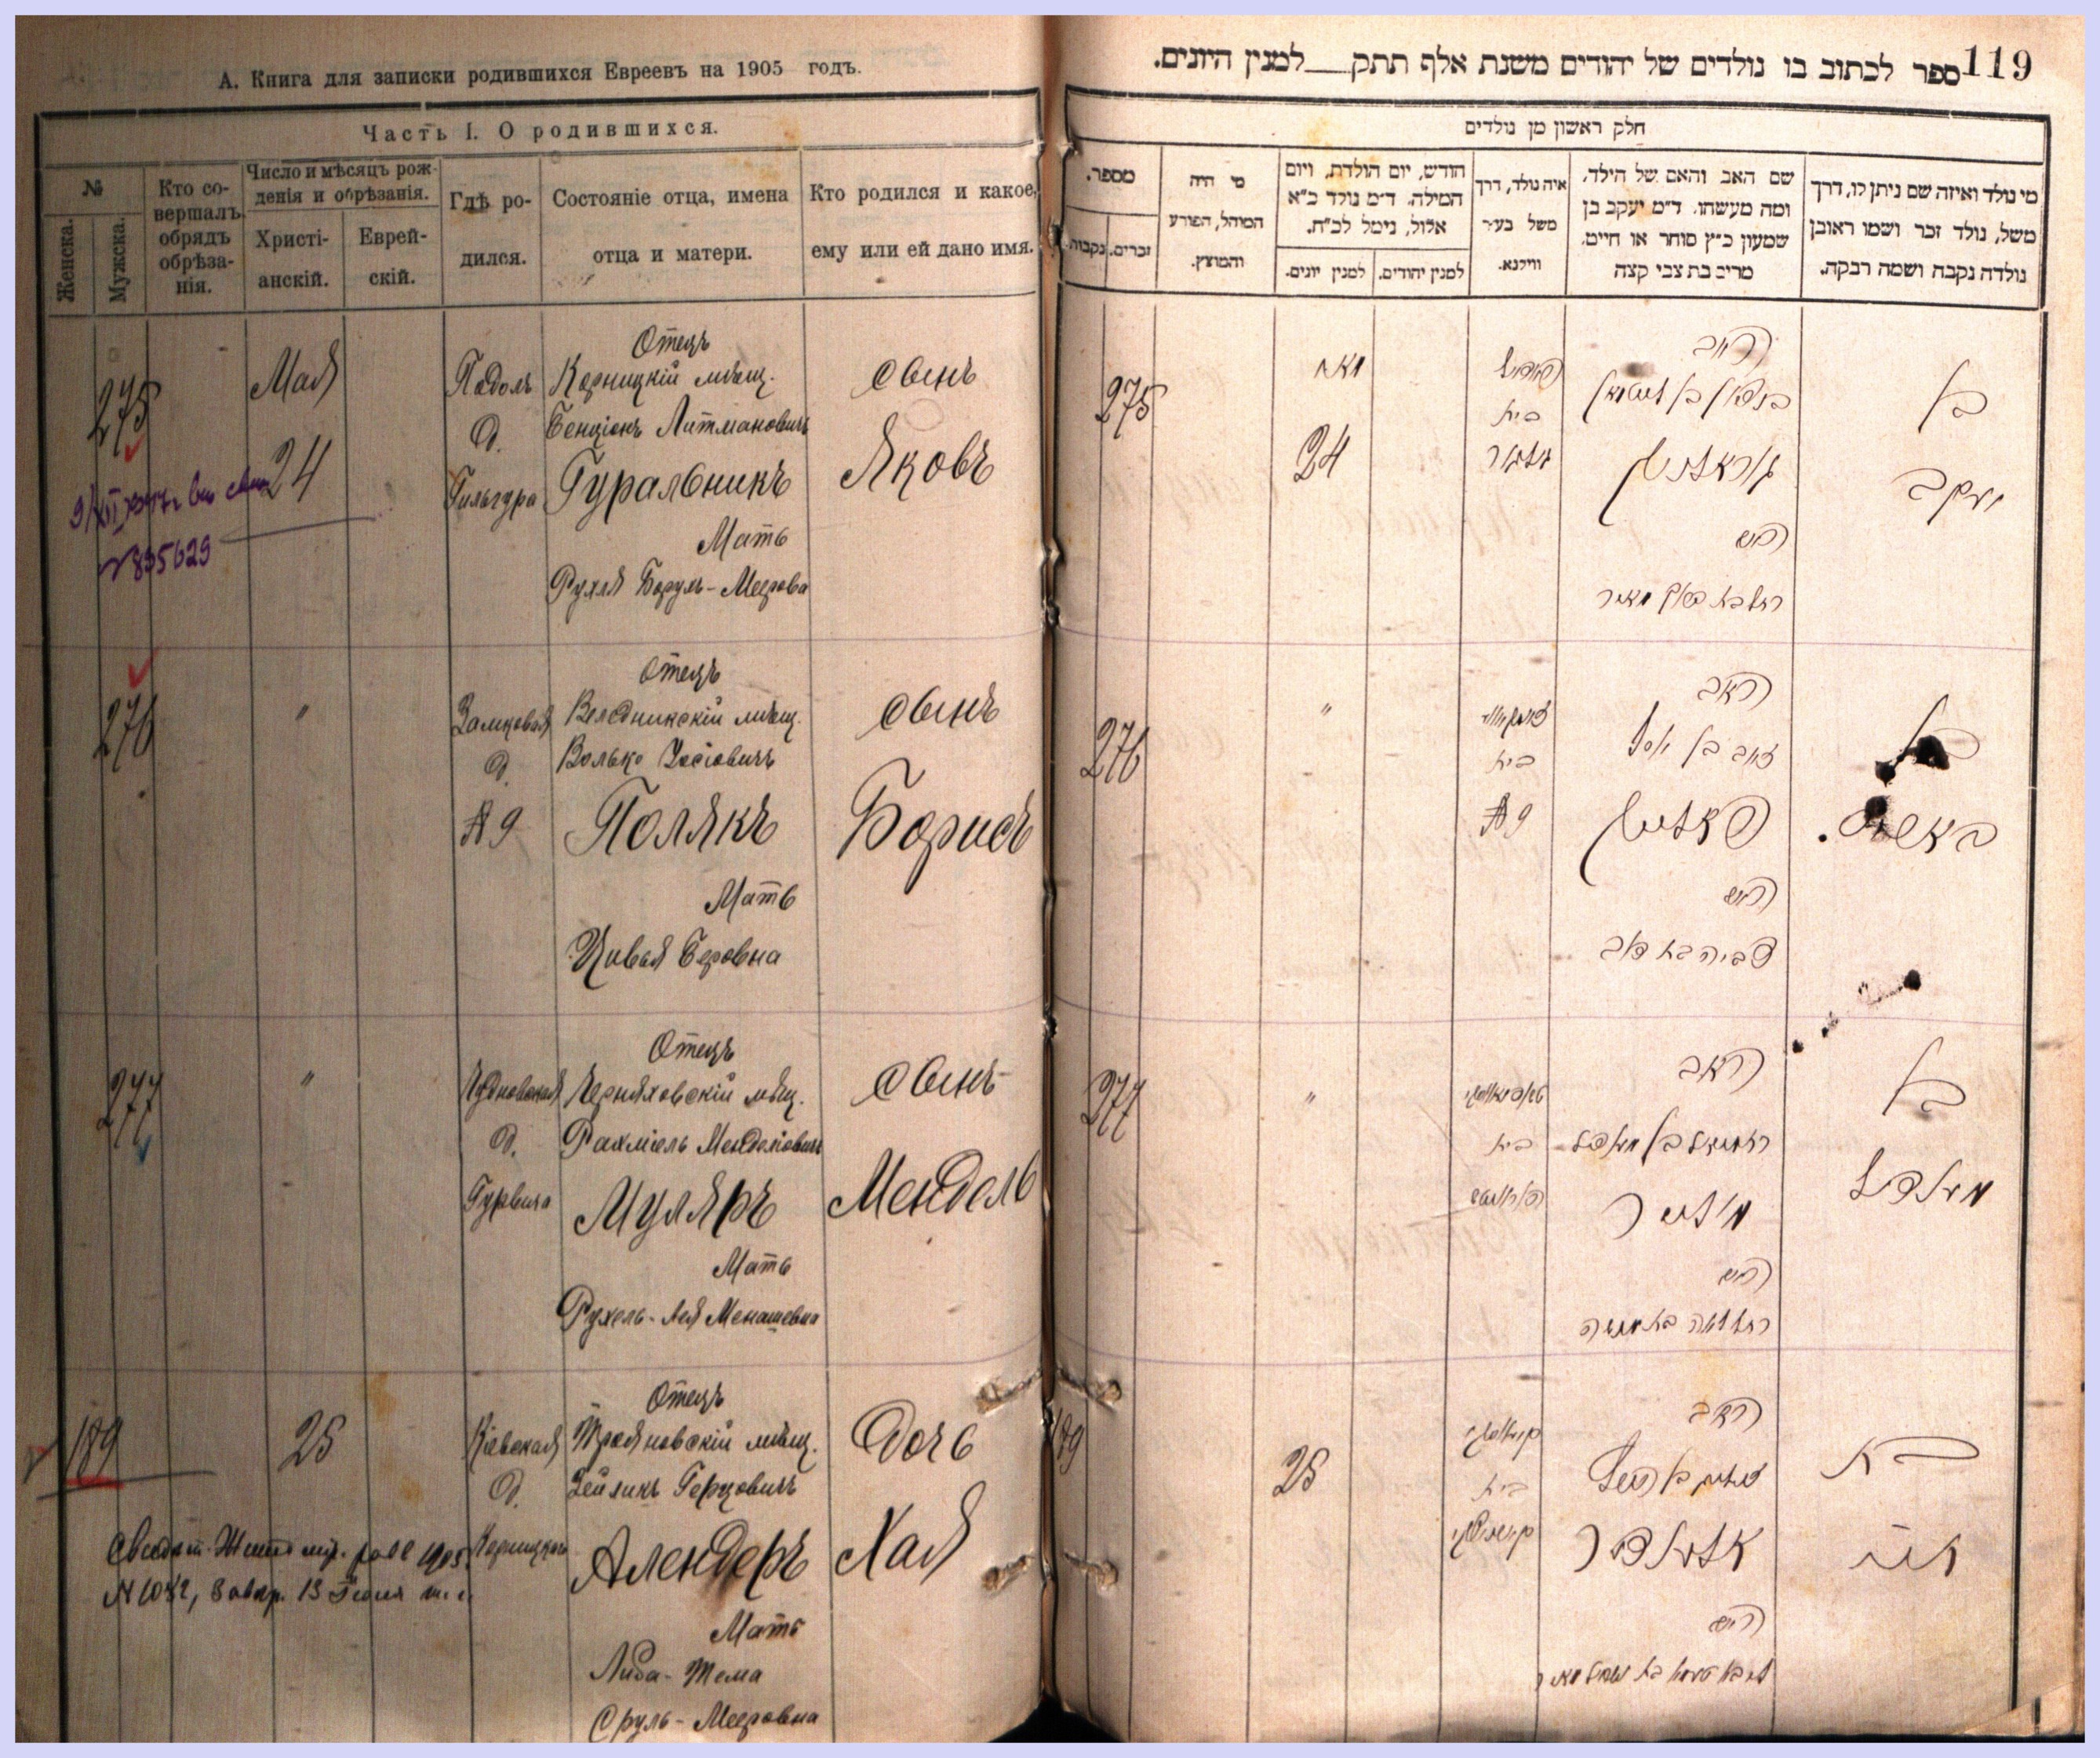 А. Книга для записки родившихся Евреевъ на 1905 годъ.
Часть I. О родившихся.
№
Женска.
Мужска.
Кто со-
вершалъ
обрядъ
обрѣза-
нія.
Число и мѣсяцъ рож-
денія и обрѣзанія.
Христі-
анскій.
Еврей-
скій.
Гдѣ ро-
дился.
Состояніе отца, имена
отца и матери.
Кто родился и какое
ему или ей дано имя.
275
Мая
24
№ 835629
Подолъ
д.
Гильгура
Отецъ
Корницкій мѣщ.
Бенціонъ Литмановичъ
Гуральникъ
Мать
Рухля Борухъ-Меерова
Сынъ
Яковъ
276
"
Замковая
д.
№ 9
Отецъ
Веледникскій мѣщ.
Волько Іосіовичъ
Полякъ
Мать
Цивья Беровна
Сынъ
Борисъ
277
"
Чудновская
д.
Гурвича
Отецъ
Черняховскій мѣщ.
Рахміель Менделіовичъ
Муляръ
Мать
Рухель-Лея Менашевна
Сынъ
Мендель
189
25
Кіевская
д.
Корницкаго
Отецъ
Трояновскій мѣщ.
Зейликъ Герцовичъ
Алендеръ
Мать
Либа-Тема
Сруль-Мееровна
Дочь
Хая
119
ספר לכתוב בו נולדים של יהודים משנת אלף תתק למנין היונים.
חלק ראשון מן נולדים
מספר.
זכרים.
נקבות.
מי היה
המוהל, הפורע
והמוצץ.
חודש, יום הולדת, ויום
המילה. ד״מ נולד כ״א
אלול, נימל לכ״ח.
למנין יונים.
למנין יהודים.
איה נולד, דרך
משל בעיר
ווילנא.
שם האב והאם של הילד,
ומה מעשהו. ד״מ יעקב בן
שמעון כ״ץ סוחר או חייט.
מרים בת צבי קצה
מי נולד ואיזה שם ניתן לו, דרך
משל, נולד זכר ושמו ראובן
נולדה נקבה ושמה רבקה.
275
מאי
24
בית
האב
גוראלניק
האם
בן
יעקב
276
"
בית
№ 9
האב
זאב בן יוסף
פאליאק
האם
צביה בת דוב
בן
277
"
בית
האב
ראחמיאל בן מענדיל
מוליאר
האם
רחל לאה בת מנשה
בן
מענדיל
189
25
בית
האב
אלענדער
האם
בת
חיה